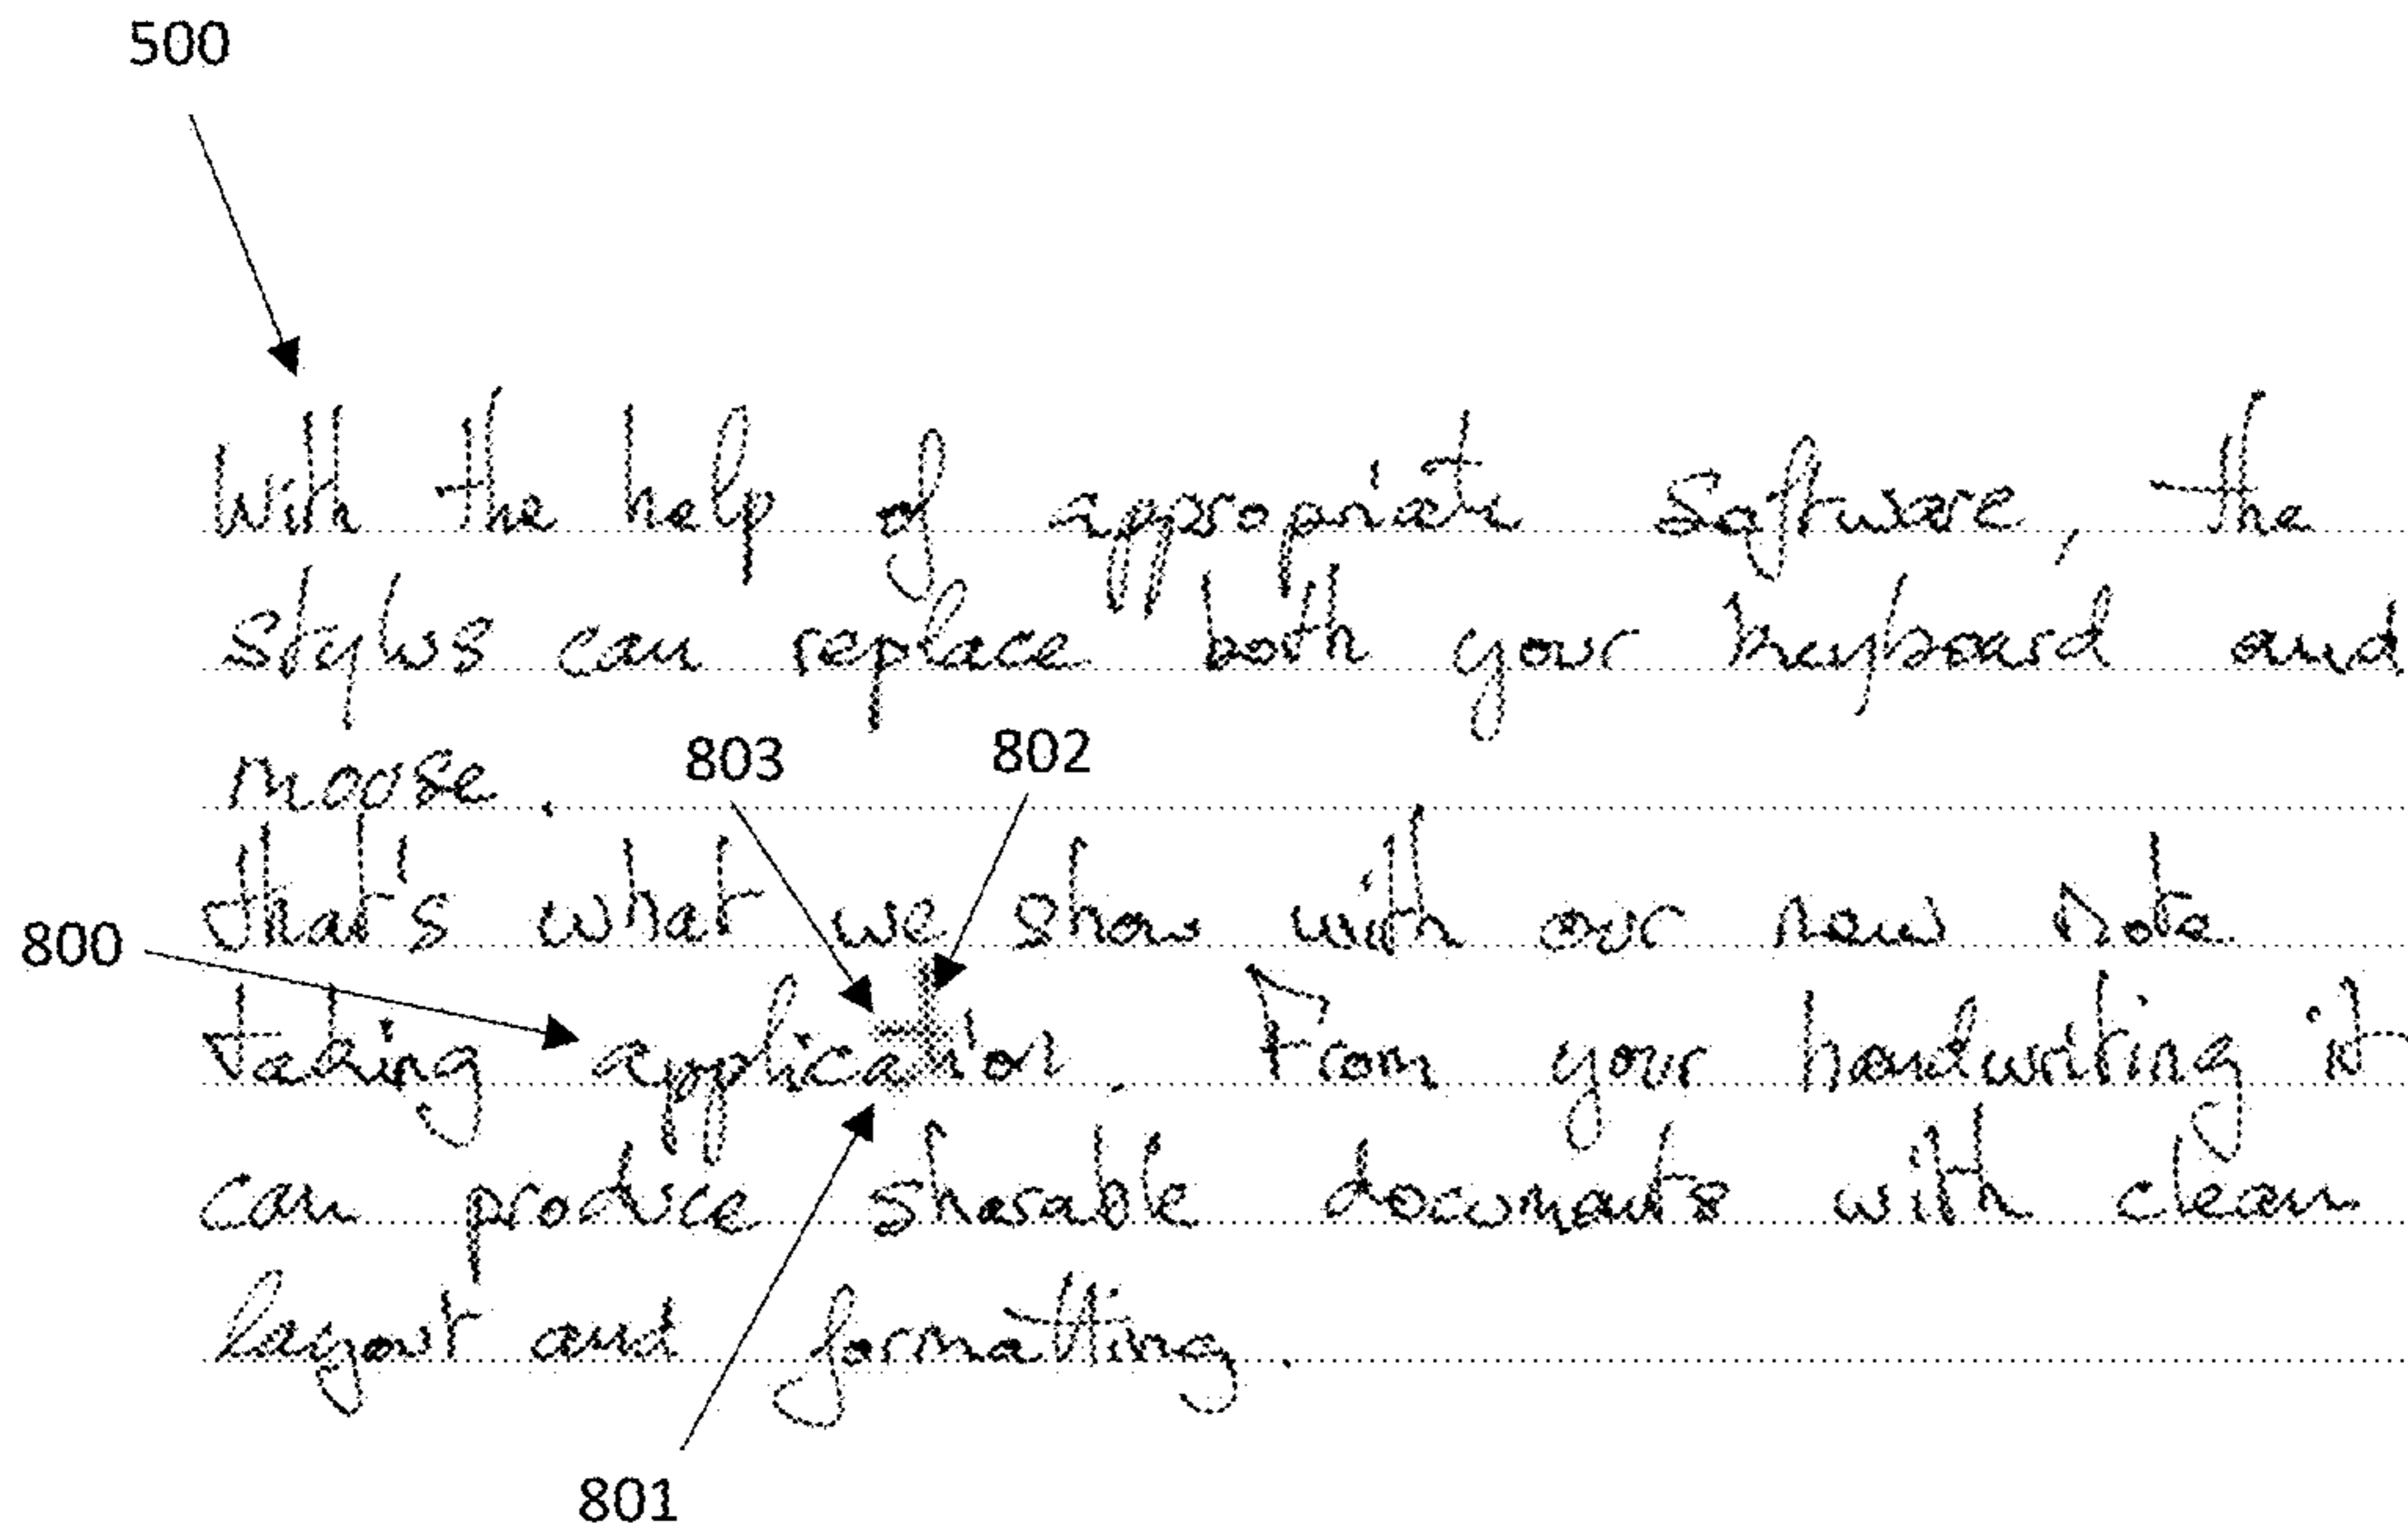 500
With the help of appropriate software, the
stylus can replace both your keyboard and
moose.
803 802
that's what we show with our new note
800
taking application. From your handwriting it
can produce sharable documents with clean
layout and formatting.
801